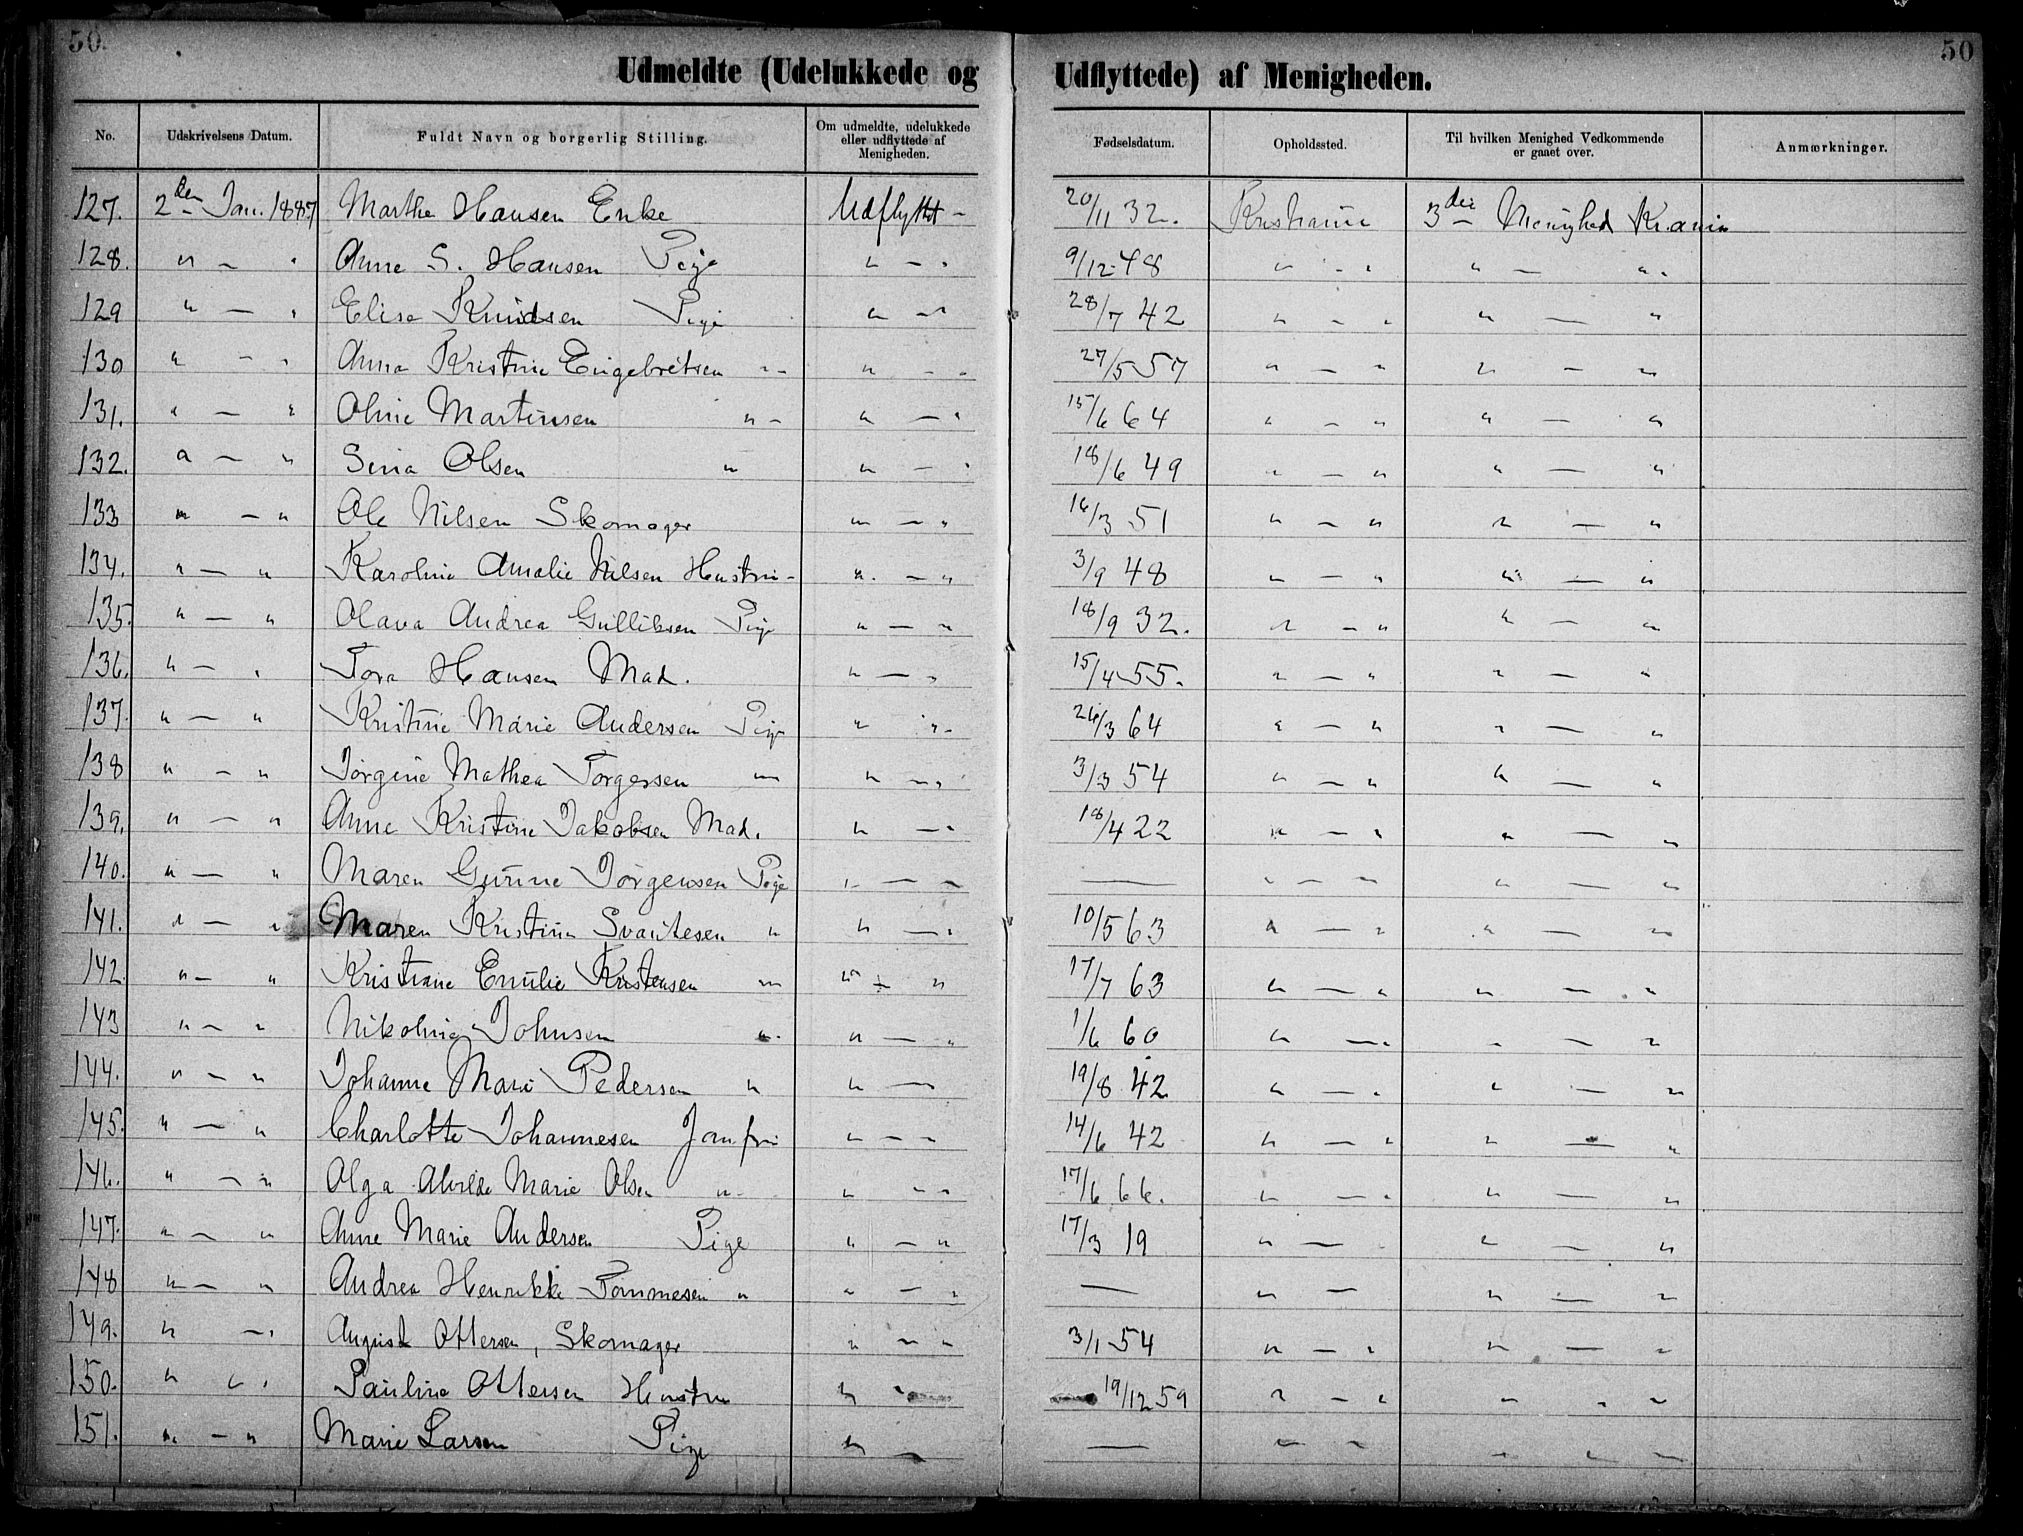 50.
50
Udmeldte (Udelukkede og Udflyttede) af Menigheden.
No. Udskrivelsens Datum. Fuldt Navn og borgerlig Stilling. Om udmeldte, udelukkede eller udflyttede af Menigheden. Fødselsdatum. Opholdssted. Til hvilken Menighed Vedkommende er gaaet over. Anmærkninger.
127. 2den Jan. 1887 Marthe Hansen Enke Udflyttet - 20/11 32. Kristiania 3die Menighed Kr.ania
128. " - " Anne S. Hansen Pige " - " 9/12 48 " - " " - "
129 " - " Elise Knudsen Pige " - " 28/7 42 " - " " - "
130 " - " Anna Kristine Engebretsen " - " - " 27/5 57 " - " " - "
131. " - " Oline Martinsen " - " - " 15/6 64 " - " " - "
132. " - " Sina Olsen " " - " 18/6 49 " - " " - "
133 " - " Ole Nilsen Skomager " - " 16/3 51 " - " " - "
134. " - " Karoline Amalie Nilsen Hustru - " - " 3/9 48 " - " " - "
135. " - " Olava Andrea Gulliksen Pige " - " 18/9 32. " - " " - "
136. " - " Tora Hansen Mad. " - " 15/4 55. " - " " - "
137. " - " Kristine Marie Andersen Pige " " - 26/3 64 " - " " - "
138 " - " Jørgine Mathea Torgersen " " - " 3/3 54 " - " " - "
139. " - " Anne Kristine Jakobsen Mad. " - " 18/4 22 " - " " - "
140. " - " Maren Gurine Jørgensen Pige " - " — " - " " - "
141. " - " Maren Kristine Svantesen " " - " 10/5 63 " - " " - "
142. " - " Kristiane Emilie Kristensen " " - " 17/7 63 " - " " - "
143 " - " Nikoline Johnsen " " - " 1/6 60 " - " " - "
144. " - " Johanne Marie Pedersen " " - " 19/8 42 " - " " - "
145. " - " Charlotte Johannesen Jomfru " - " 14/6 42 " - " " - "
146. " - " Olga Alvilde Marie Olsen " - " - " 17/6 66. " - " " - "
147. " - " Anne Marie Andersen Pige " - " 17/3 19 " - " - "
148 " - " Andrea Henrikke Tommesen " " - " — " - " - "
149. " - " August Ottersen, Skomager " - " 3/1 54 " - " " - "
150. " - " Pauline Ottersen Hustru " - " 19/12 59 " - " " - "
151. " - " Marie Larsen Pige " - — " - " " - "